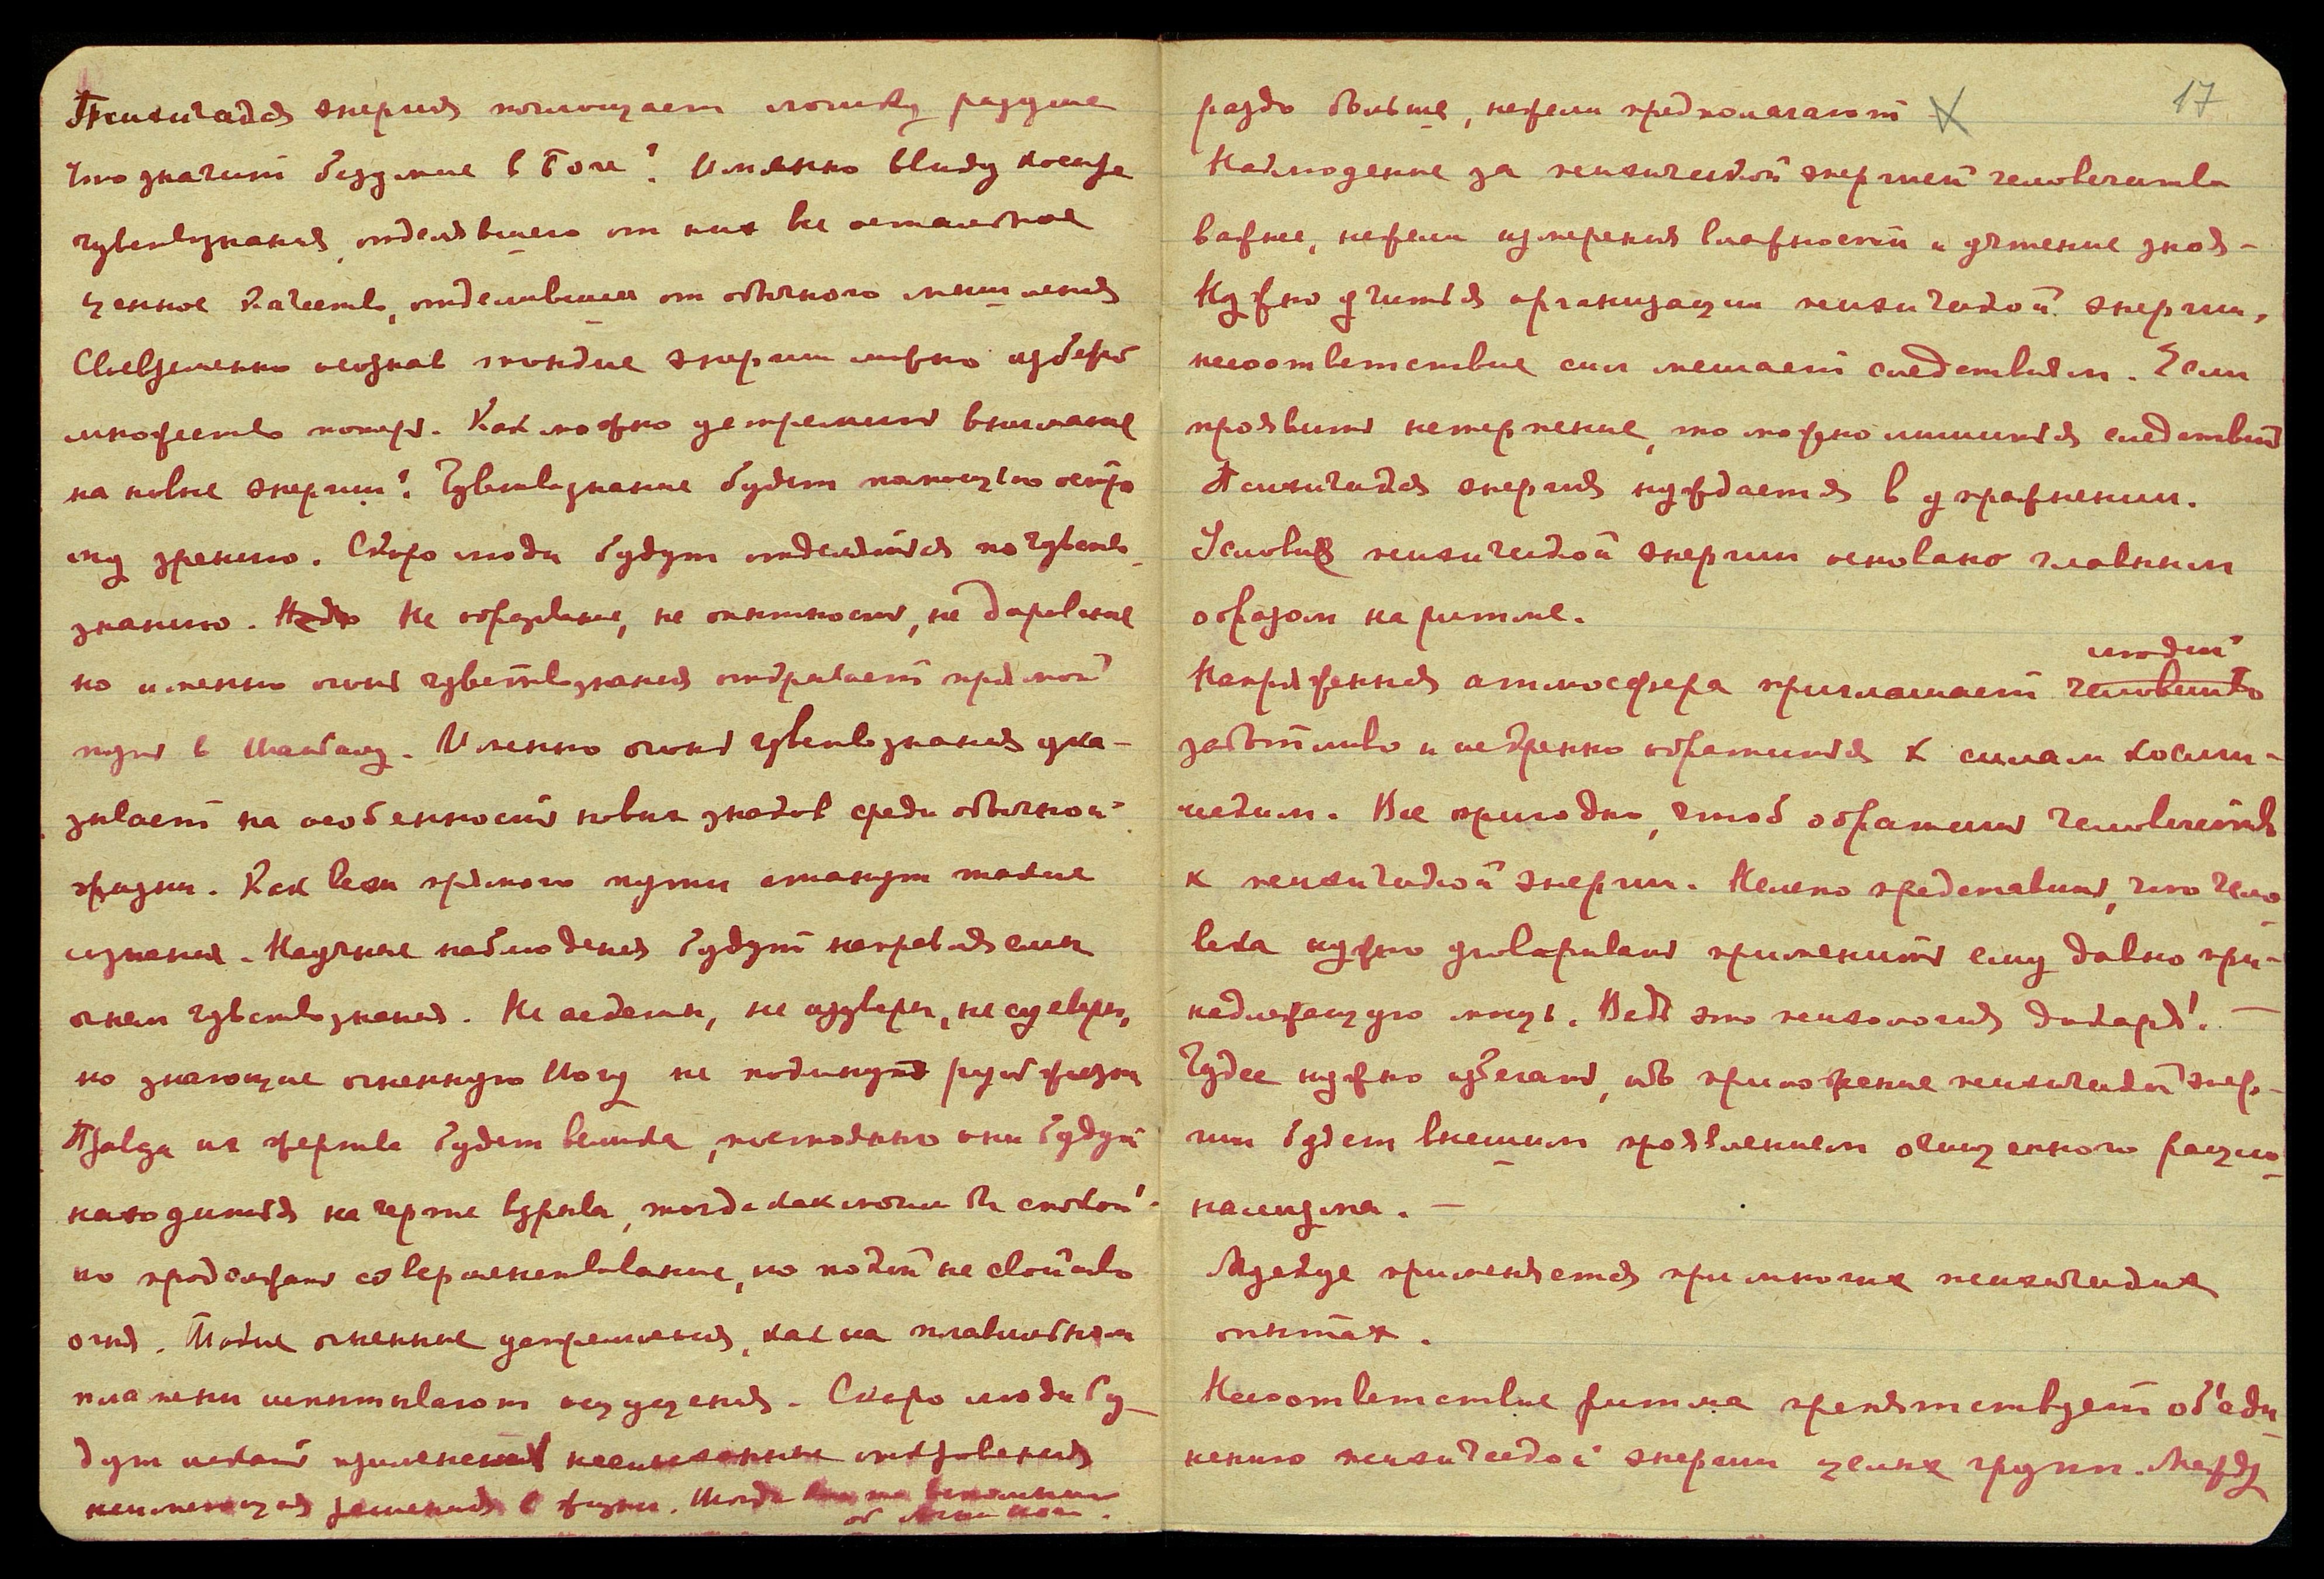 Психическая энергия поглощает логику разума
Что значит безумие в Боге? Именно ввиду когда
чувствознания, отделявшего от них все остальное
ценное качество, отделившись от обычного мышления
Своевременно осознав тонкие энергии можно избежать
множество потерь. Как можно устремить внимание
на новые энергии? Чувствознание будет помощью остро
му зрению. Скоро люди будут отделяться по чувство
знанию. Не образование, не опытность, не дарование
но именно огонь чувствознания открывает прямой
путь в Шамбалу. Именно огонь чувствознания ука-
зывает на особенность новых знаков среди обычной
жизни. Как вехи прямого пути станут такие
сознания. Научные наблюдения будут направляемы
огнем чувствознания. Не аскеты, не изуверы, не суеверы,
но знающие огненную Йогу не покинут русл жизни
Правда их жертва будет велика, постоянно они будут
находиться на черте взрыва, тогда как могли бы спокой-
но продолжать совершенствование, но покой не свойство
огня. Такие огненные устремления, как на плавильном
пламени испытывают ощущения. Скоро люди бу-
дут искать применения неслыханные откровения
решения в жизни. Тогда вспомним
об Агни Йоги.
17
раздо больше, нежели предполагают
Наблюдение за психической энергией человечества
важнее, нежели измерения влажности и учтение зноя -
Нужно учиться организации психической энергии,
несоответствие сил мешает следствиям. Если
проявить нетерпение, то можно лишиться следствий
Психическая энергия нуждается в упражнении.
Условие психической энергии основано главным
образом на ритме.
людей
Напряженная атмосфера приглашает человечество
заботливо и искренно обратиться к силам косми-
ческим. Все пригодно, чтоб обратить человечество
к психической энергии. Нелепо представить, что чело
века нужно уговаривать применить ему давно при-
надлежащую мощь. Ведь это психология дикаря! —
Чудес нужно избегать, ибо приложение психической энер-
гии будет внешним проявлением очищенного рацио
нализма. —
Музыка применяется при многих психических
опытах.
Несоответствие ритма препятствует об'еди
нению психической энергии целых групп. Между